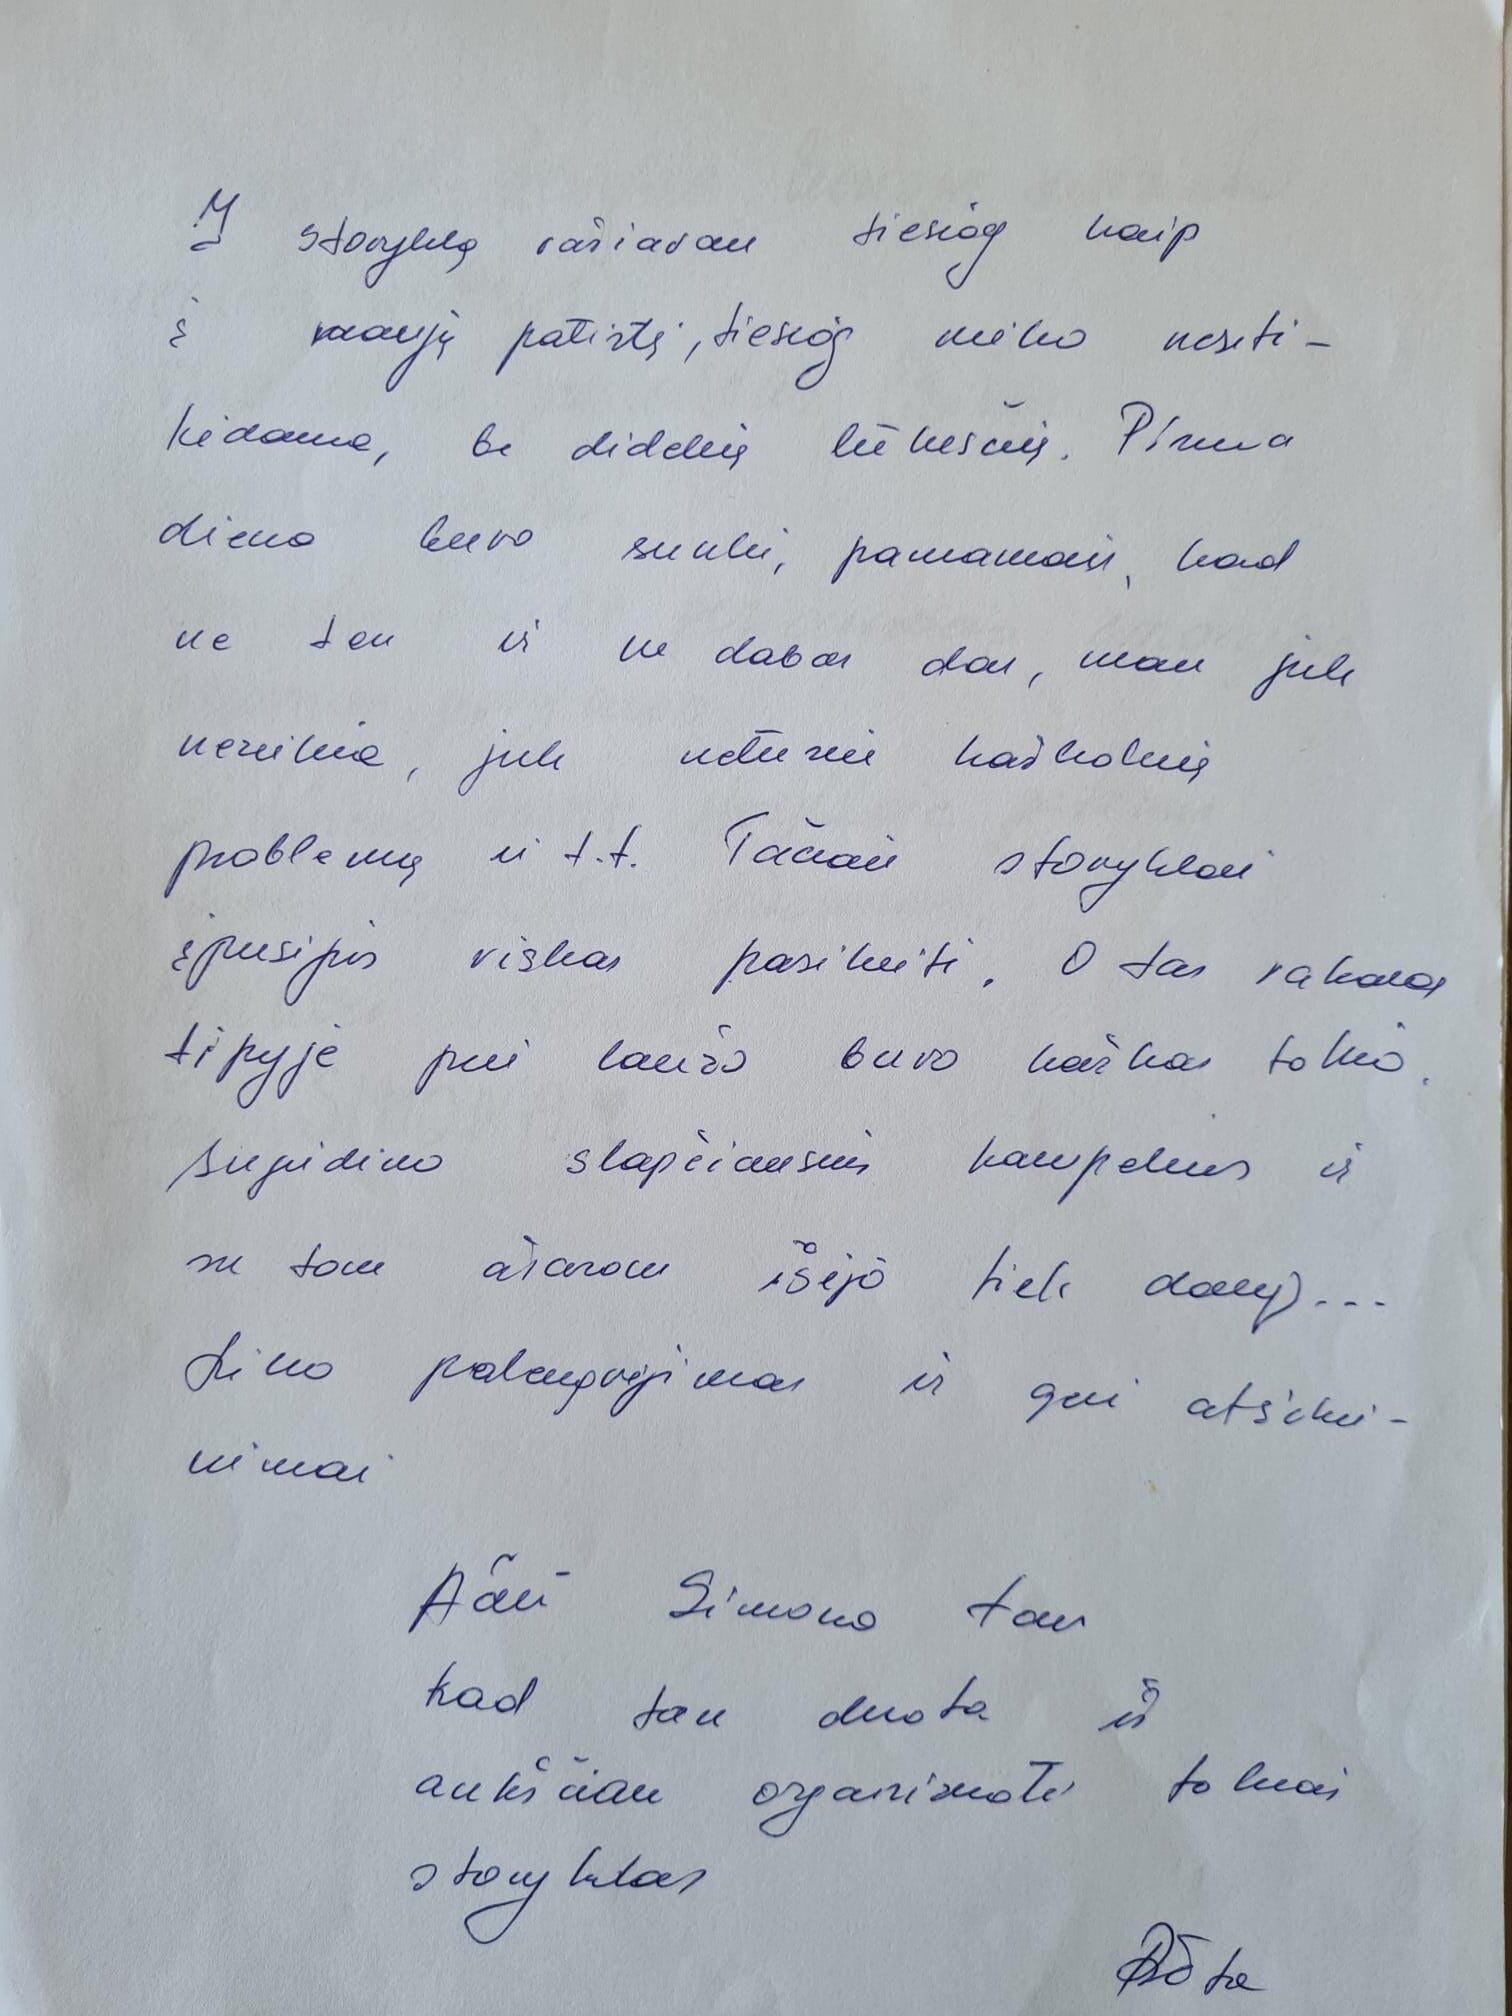 Į stovyklą važiavau tiesiog kaip
į naują patirtį, tiesiog nieko nesiti-
kėdama, be didelių lūkesčių. Pirma
diena buvo sunki, pamaniau, kad
ne ten ir ne dabar dar, man juk
nereikia, juk neturiu kažkokių
problemų ir t.t. Tačiau stovyklai
įpusėjus viskas pasikeitė. O tas vakaras
tipyje prie laužo buvo kažkas tokio.
sujudino slapčiausius kampelius ir
su tom ašarom išėjo tiek daug...
Liko palengvėjimas ir geri atsimi-
nimai
Ačiū Simona tau
kad tau duota iš
aukščiau organizuoti tokias
stovyklas